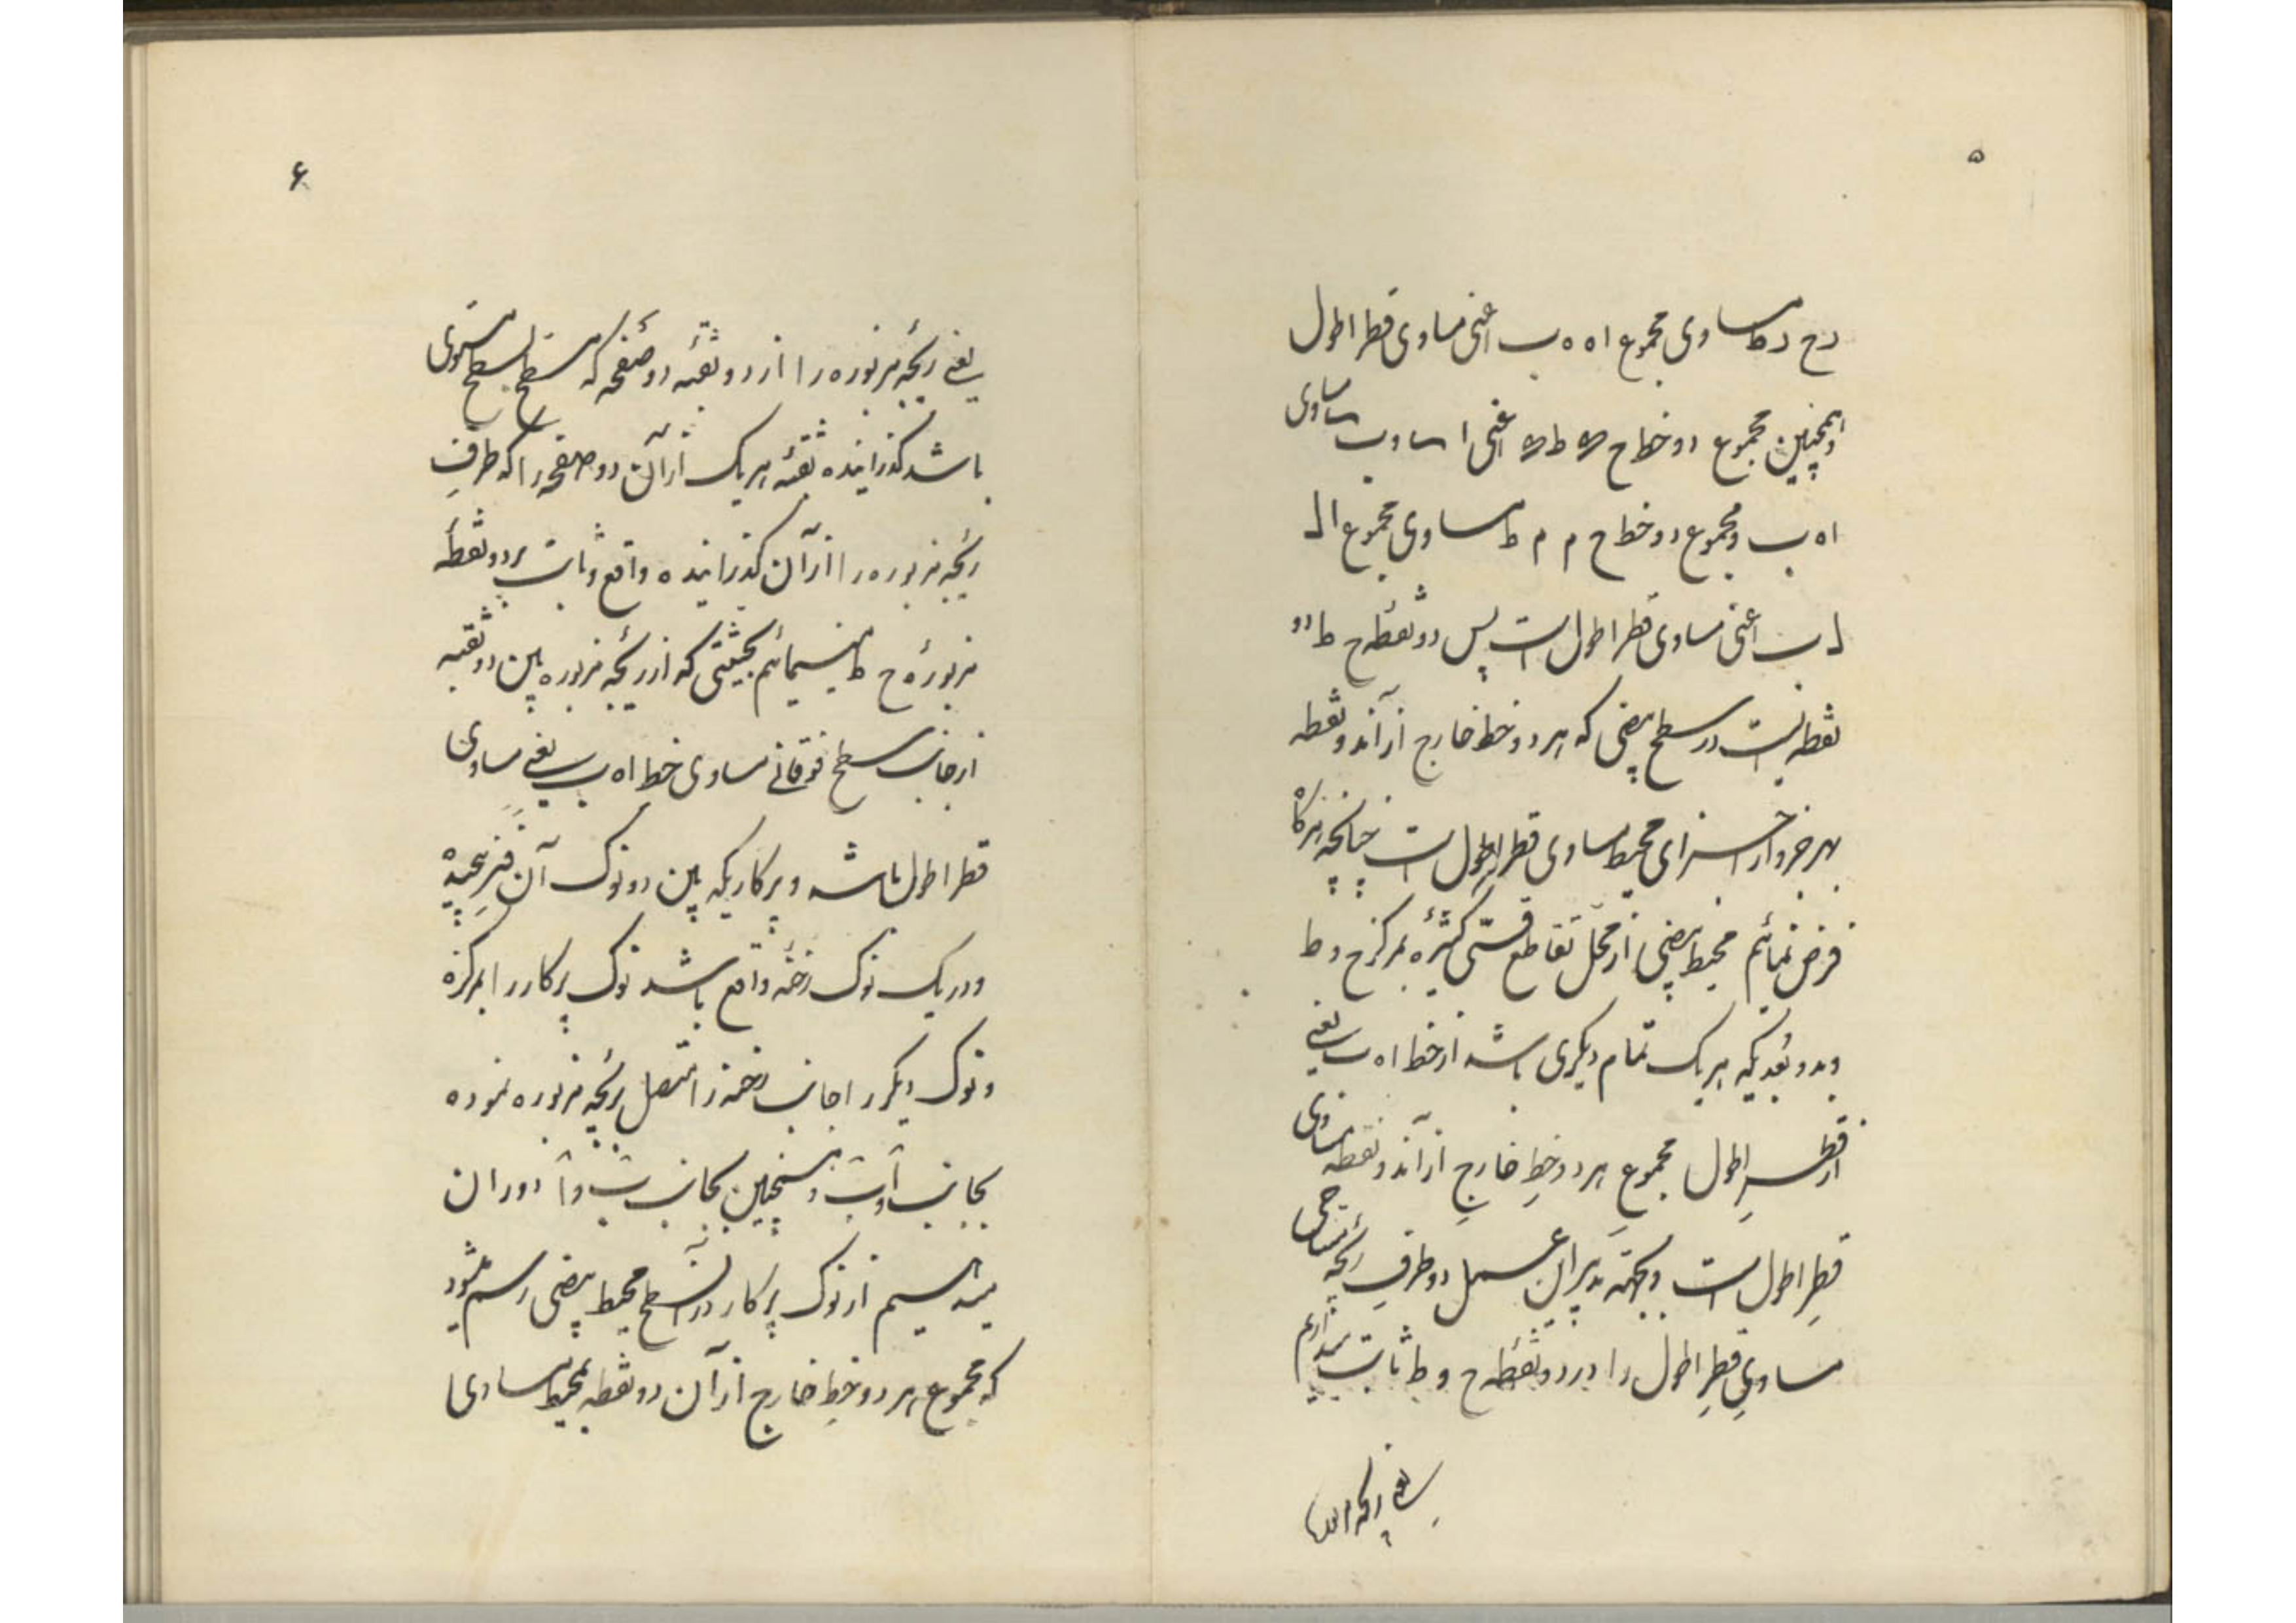 ۵
دح د ط مساوی مجموع ا ه ه ب اعنی مساوی قطر اطول
و همچنین مجموع دو خط ح ط اعنی ا ب مساوی
ا ه ب و مجموع دو خط ح م م ط مساوی مجموع ا ل
ل ب اعنی مساوی قطر اطول است پس دو نقطه ح ط دو
نقطه ایست در سطح بیضی که هر دو خط خارج از آندو نقطه
بهر جزو از اجزای محیط مساوی قطر اطول است چنانچه هرگاه
فرض نمائیم محیط بیضی از محل تقاطع قسی کثیره بمرکز ح و ط
و بدو بُعدیکه هر یک تمام دیگری باشد از خط ا ه ب یعنی
از قطر اطول مجموع هر دو خطِ خارج از آندو نقطه مساوی
قطرِ اطول است و بجهته عمل دو طرفِ
مساویِ قطرِ اطول را در دو نقطه ح و ط ثابت میداریم
یعنی
۶
یعنی مزبوره را از دو ثقبه دو صفحه که مسطح بسطح مستوی
باشد گذرانیده ثقبه هر یک از آن دو صفحه را که طرفِ
مزبوره را از آن گذرانیده واقع و ثابت بر دو نقطه
مزبوره ح ط مینمائیم بحیثیتی که از مزبوره بین دو ثقبه
از جانب سطح فوقانی مساوی خط ا ه ب یعنی مساوی
قطر اطول باشد و پرکاریکه بین دو نوک آن
و در یک نوک رخنه واقع باشد نوک پرکار را بمرکز ه
و نوک دیگر را جانب رخنه را متصل مزبوره نموده
بجانب ا و ب و همچنین بجانب ب و ا دوران
میدهیم از نوک پرکار در آن سطح محیط بیضی رسم میشود
که مجموع هر دو خطِ خارج از آن دو نقطه بمحیط مساوی